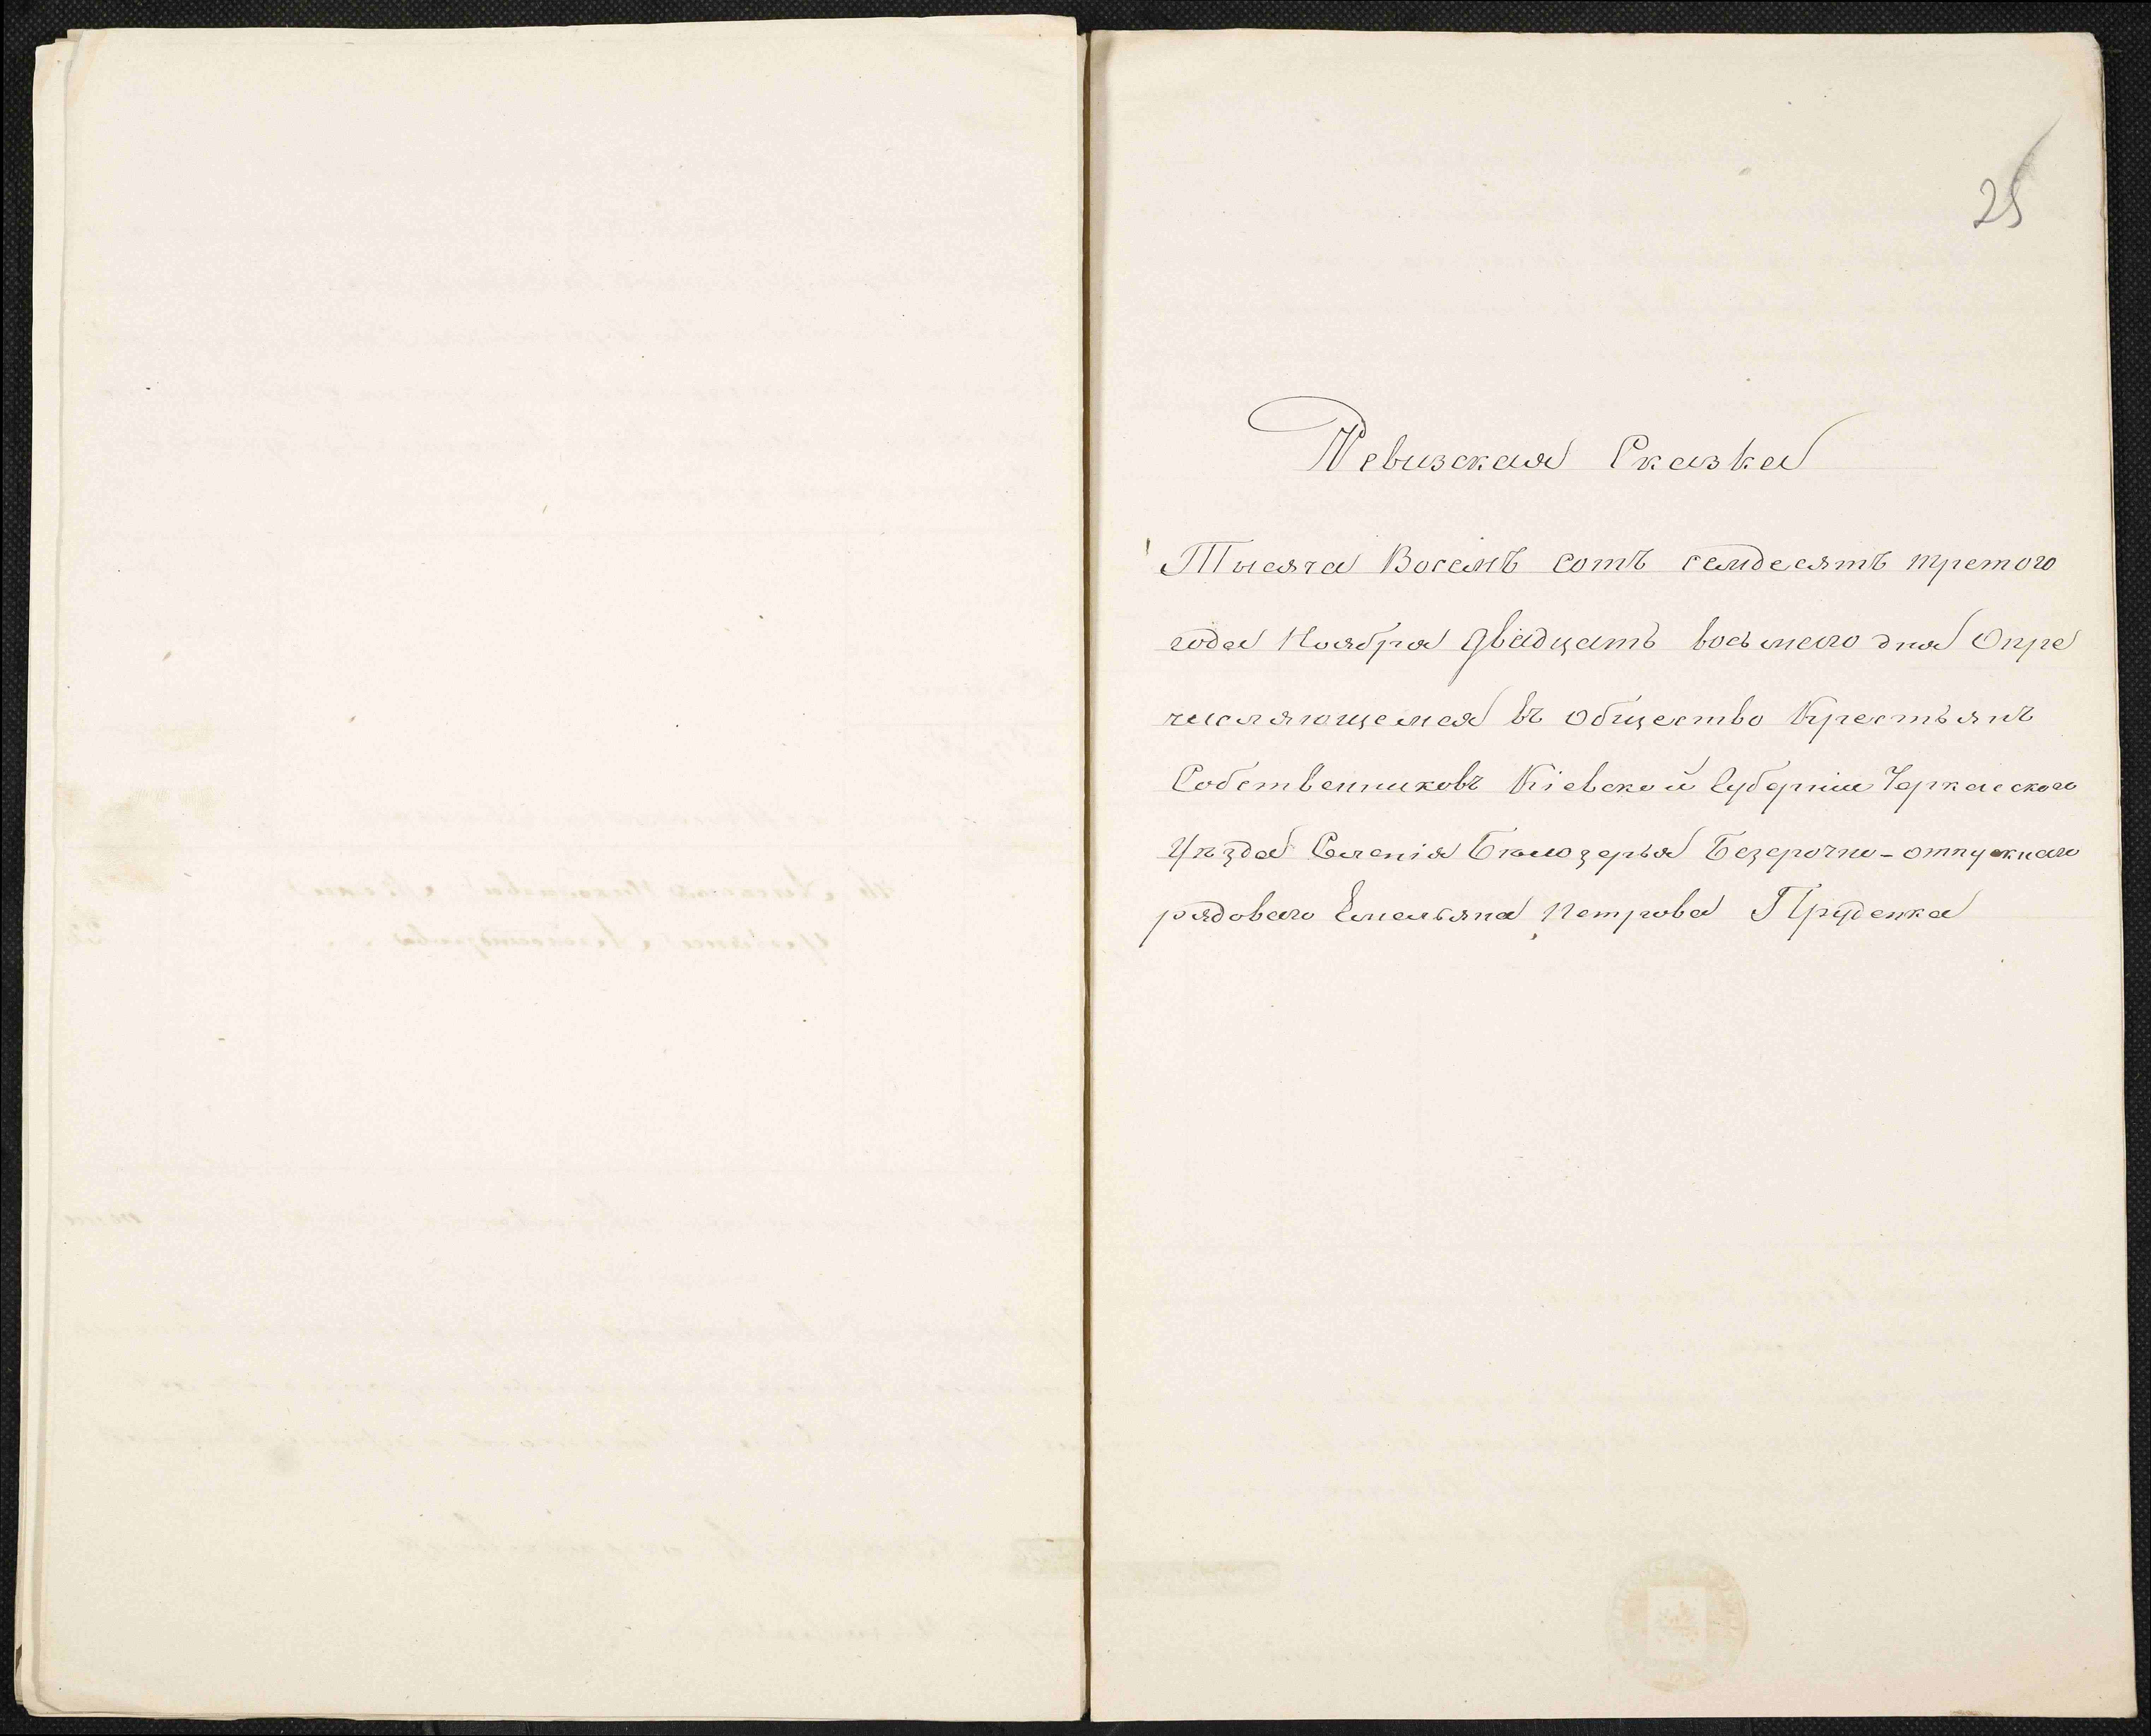 25
Ревизская Сказка
Тысяча Восемъ сотъ семдесятъ третого
года Ноября двадцать восьмаго дня О при
числяющемся въ общество Крестьянъ
Собственниковъ Кіевской Губерніи Черкасского
Уѣзда Селенія Бѣлозерья Безсрочно-отпускнаго
рядоваго Емельяна Петрова Пруденка